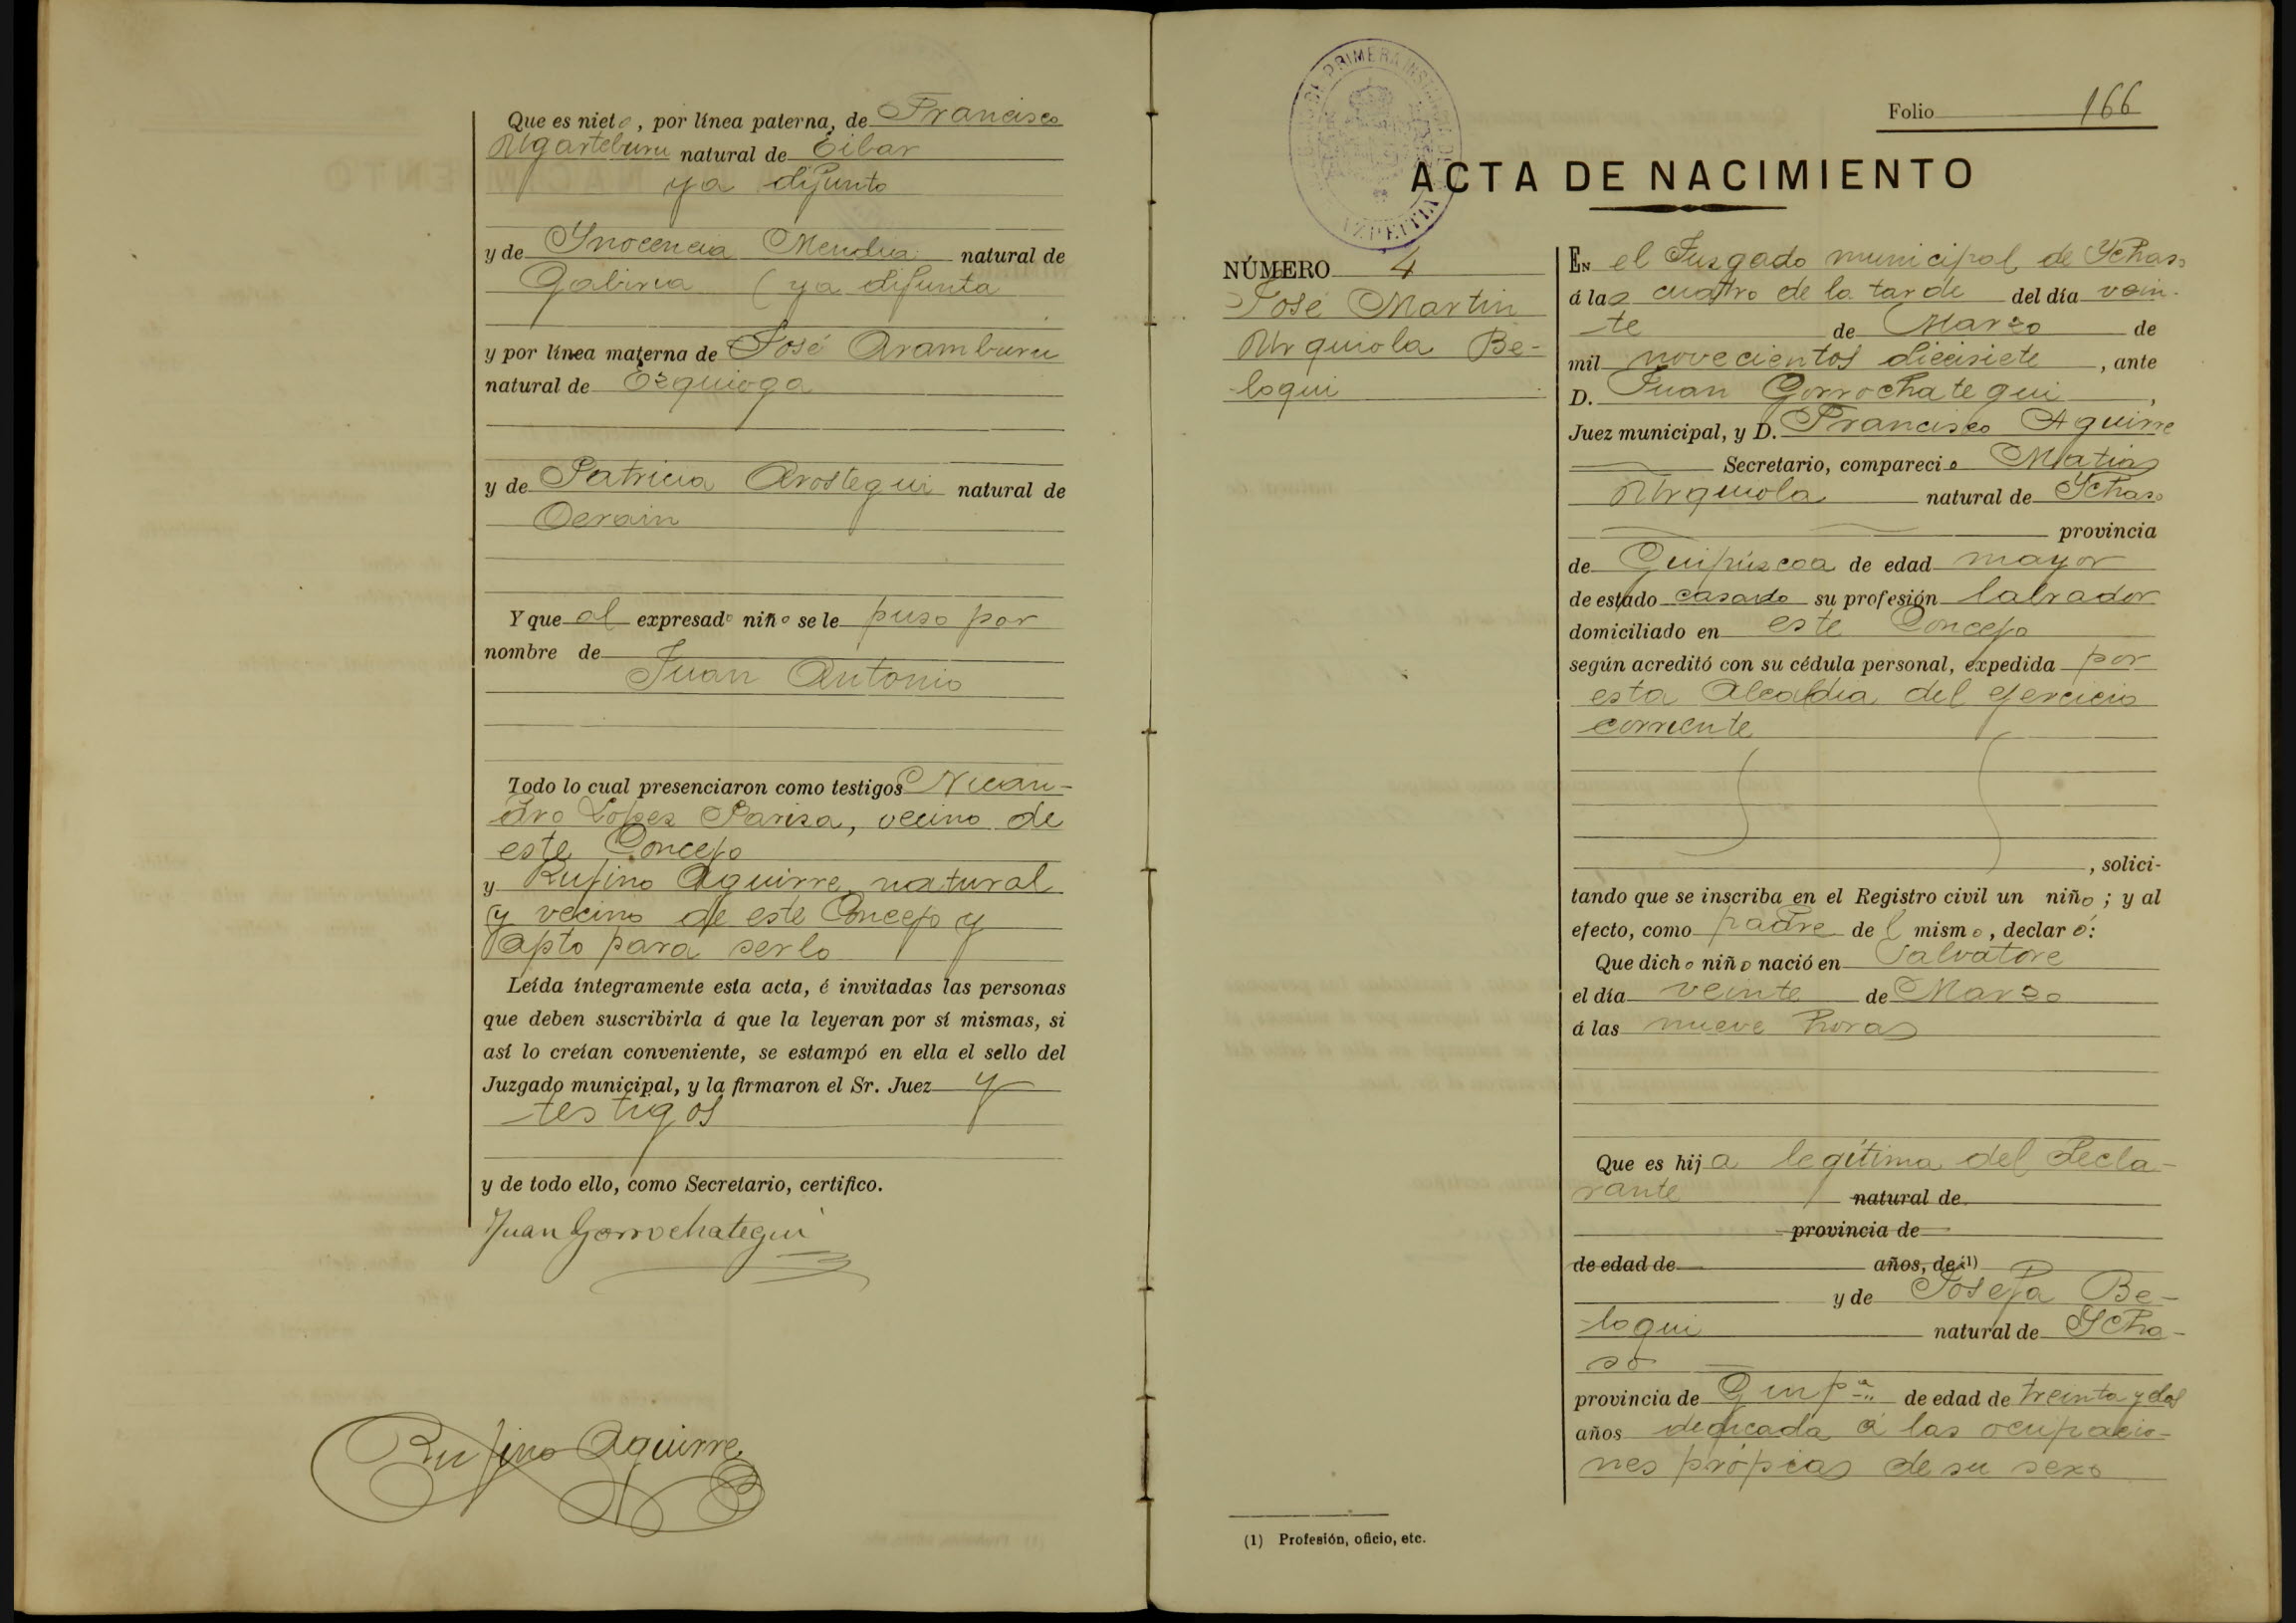 Que es nieto, por línea paterna, de Francisco
Ugarteburu natural de Eibar
ya difunto
y de Ynocencia Mendia natural de
Gabiria (ya difunta
y por línea materna de José Aramburu
natural de Ezquioga
y de Patricia Arostegui natural de
Cerain
Y que al expresado niño se le puso por
nombre de
Juan Antonio
Todo lo cual presenciaron como testigos Nican-
dro Lopez Pariza, vecino de
este Concejo
y Rufino Aguirre, natural
y vecino de este Concejo y
apto para serlo
Leída íntegramente esta acta, é invitadas las personas
que deben suscribirla á que la leyeran por sí mismas, si
así lo creían conveniente, se estampó en ella el sello del
Juzgado municipal, y la firmaron el Sr. Juez y
testigos
y de todo ello, como Secretario, certifico.
Juan Gorrochategui
Rufino Aguirre
PRIMERA INSTANCIA
AZPEITIA
Folio 166
ACTA DE NACIMIENTO
NÚMERO 4
José Martin
Urquiola Be-
loqui
EN el Juzgado municipal de Ychaso
á las cuatro de la tarde del día vein-
te de Marzo de
mil novecientos diecisiete, ante
D. Juan Gorrochategui,
Juez municipal, y D. Francisco Aguirre
Secretario, compareció Matias
Urquiola natural de Ychaso
provincia
de Guipúzcoa de edad mayor
de estado casado su profesión labrador
domiciliado en este Concejo
según acreditó con su cédula personal, expedida por
esta Alcaldia del ejercicio
corriente
, solici-
tando que se inscriba en el Registro civil un niño; y al
efecto, como padre del mismo, declaró:
Que dicho niño nació en Salvatore
el día veinte de Marzo
á las nueve horas
Que es hija legítima del decla-
rante natural de
provincia de
de edad de años, de (1)
y de Josefa Be-
loqui natural de Ycha-
so
provincia de Guipª de edad de treinta y dos
años dedicada á las ocupacio-
nes própias de su sexo
(1) Profesión, oficio, etc.